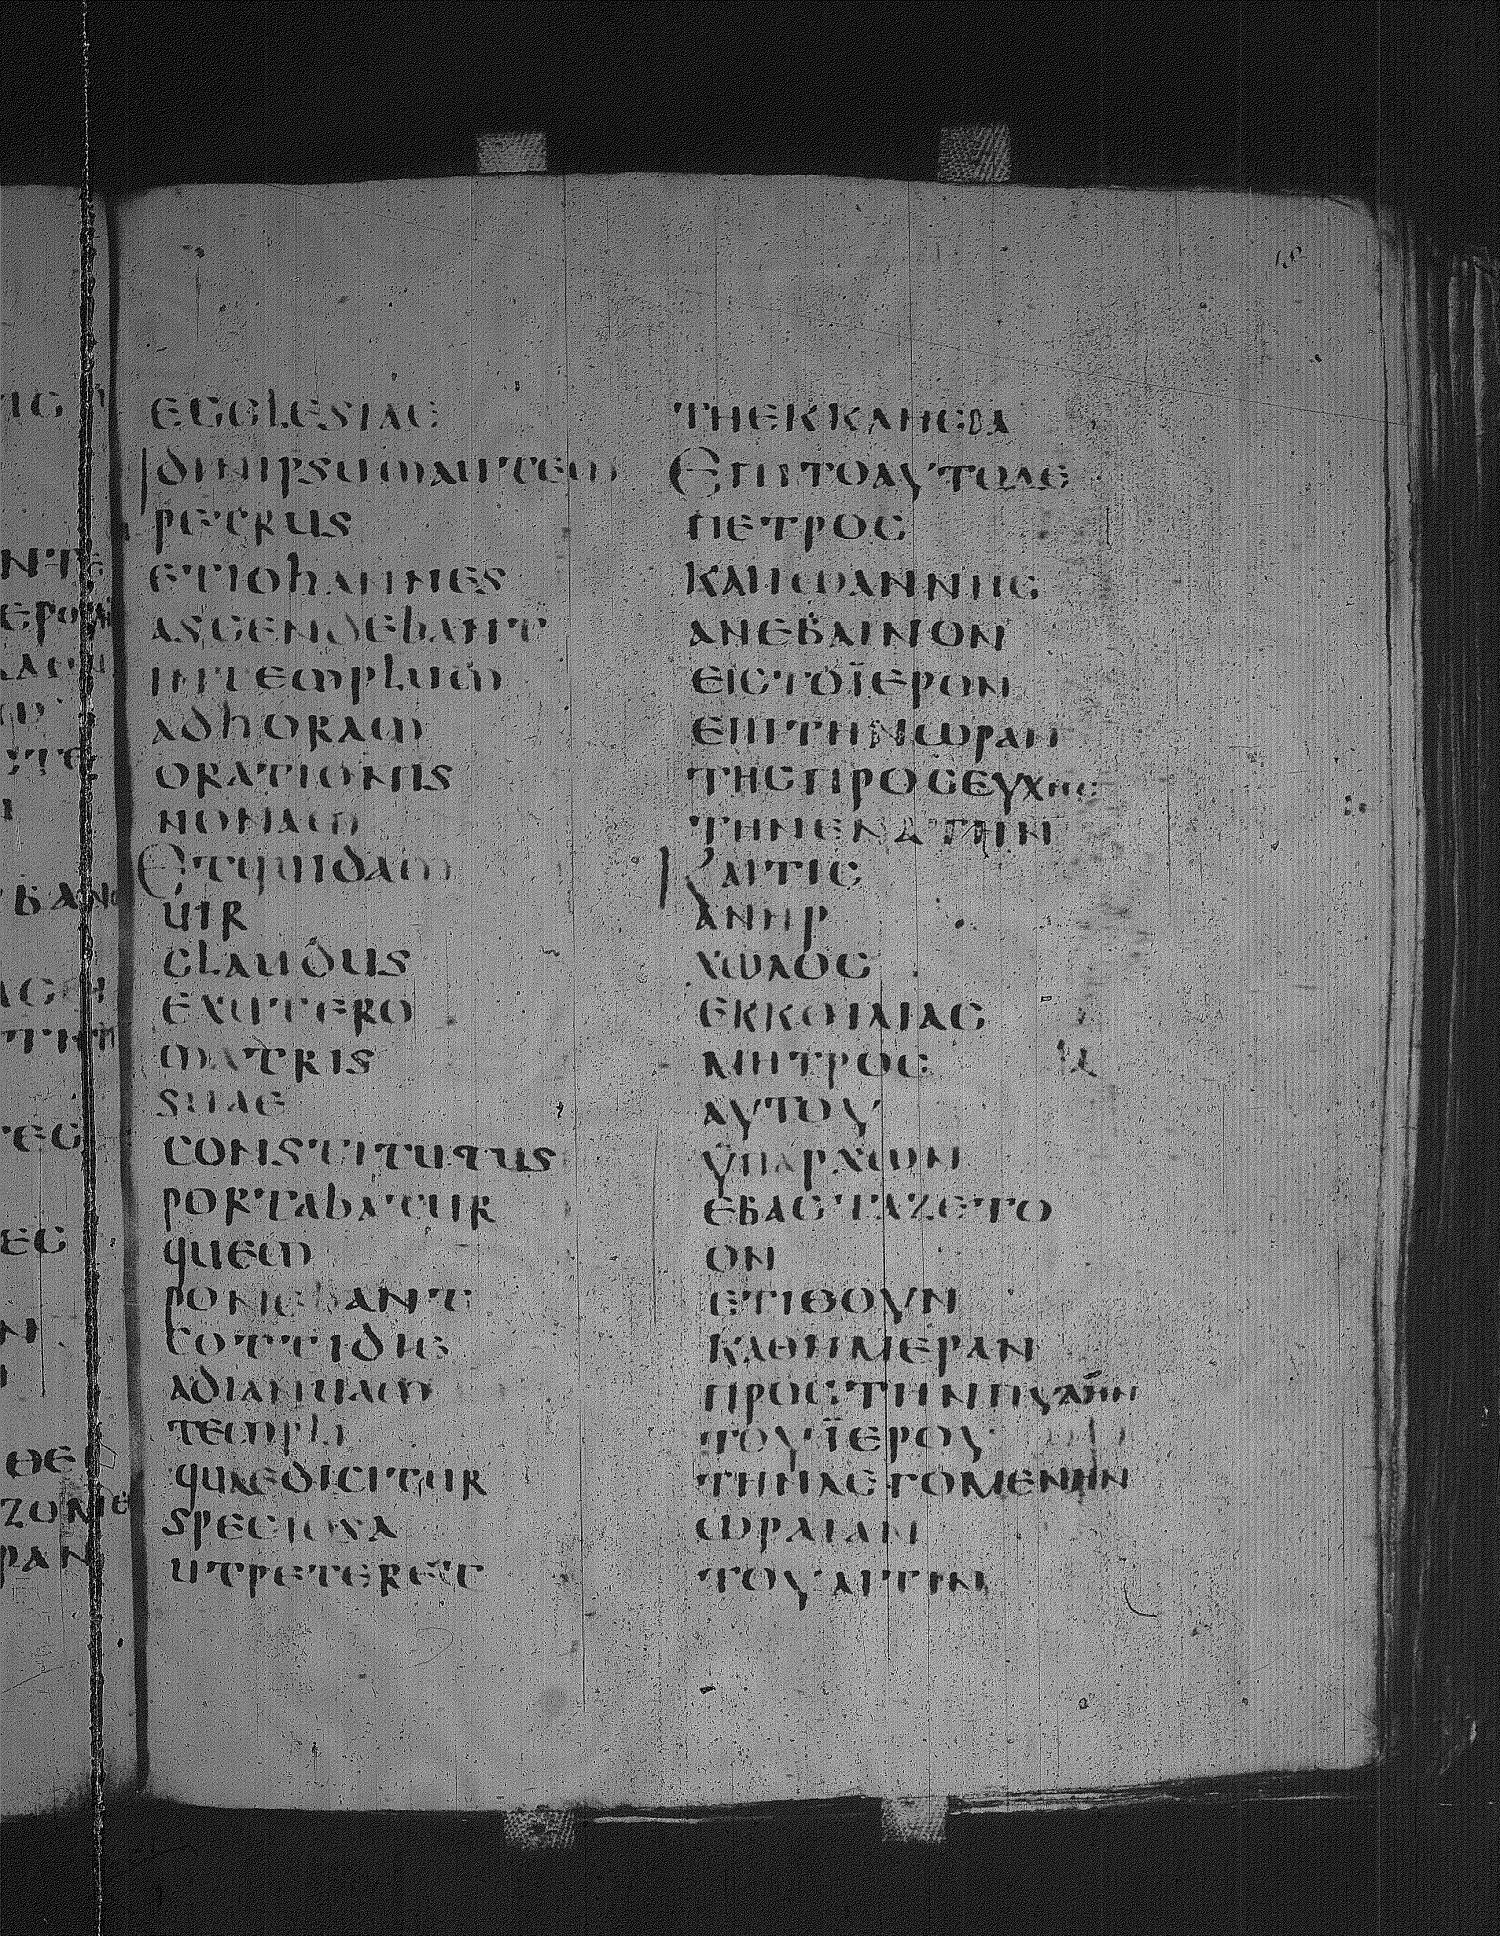 ECCLESIAE
IDINIPSUMAUTEM
PETRUS
ETIOHANNES
ASCENDEBANT
INTEMPLUM
ADHORAM
ORATIONIS
NONAM
ETQUIDAM
UIR
CLAUDUS
EXUTERO
MATRIS
SUAE
CONSTITUTUS
PORTABATUR
QUEM
PONEBANT
COTTIDIE
ADIANUAM
TEMPLI
QUAEDICITUR
SPECIOSA
UTPETERET
ΤΗΕΚΚΛΗCΙΑ
ΕΠΙΤΟΑΥΤΟΔΕ
ΠΕΤΡΟC
ΚΑΙΙΩΑΝΝΗC
ΑΝΕΒΑΙΝΟΝ
ΕΙCΤΟΪΕΡΟΝ
ΕΠΙΤΗΝΩΡΑΝ
ΤΗCΠΡΟCΕΥΧΗC
ΤΗΝΕΝΑΤΗΝ
ΚΑΙΤΙC
ΑΝΗΡ
ΧΩΛΟC
ΕΚΚΟΙΛΙΑC
ΜΗΤΡΟC
ΑΥΤΟΥ
ΫΠΑΡΧΩΝ
ΕΒΑCΤΑΖΕΤΟ
ΟΝ
ΕΤΙΘΟΥΝ
ΚΑΘΗΜΕΡΑΝ
ΠΡΟCΤΗΝΠΥΛΗΝ
ΤΟΥΪΕΡΟΥ
ΤΗΝΛΕΓΟΜΕΝΗΝ
ΩΡΑΙΑΝ
ΤΟΥΑΙΤΙΝ